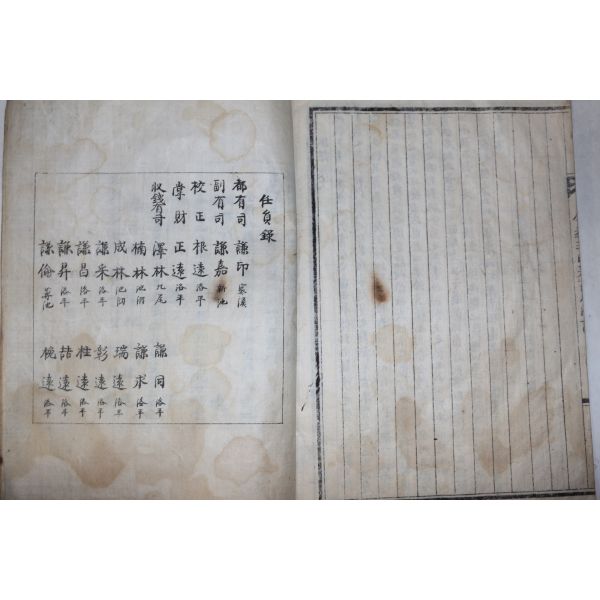 任員錄
都有司 謙印
副有司 謙嘉 新池
校正 根遠 洛平
掌財 正遠 洛平
收錢有司 澤林 九尾
楠林 池洞
成林 池洞
謙采 洛平
謙昌 洛平
謙昇 洛平
謙倫
謙同 洛平
謙求 洛平
瑞遠 洛平
彰遠 洛平
柱遠 洛平
喆遠 洛平
梡遠 洛平